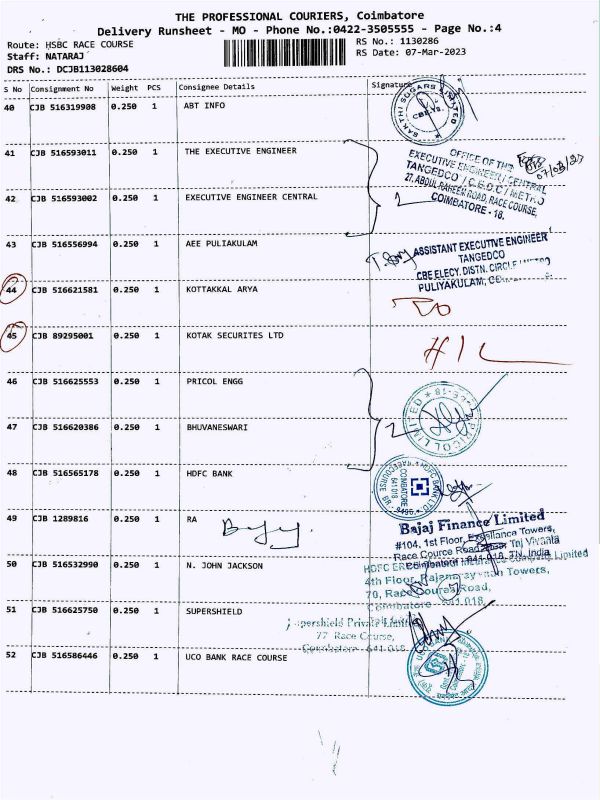 THE PROFESSIONAL COURIERS, Coimbatore
Delivery Runsheet - MO - Phone No.:0422-3505555 - Page No.:4
Route: HSBC RACE COURSE RS No.: 1130286
Staff: NATARAJ RS Date: 07-Mar-2023
DRS No.: DCJB113028604
S No Consignment No Weight PCS Consignee Details Signature
40 CJB 516319908 0.250 1 ABT INFO
SAKTHI SUGARS LIMITED
CBE-18.
41 CJB 516593011 0.250 1 THE EXECUTIVE ENGINEER
OFFICE OF THE
EXECUTIVE ENGINEER / CENTRAL
TANGEDCO / C.E.D.C / METRO
27, ABDUL RAHEEM ROAD, RACE COURSE,
COIMBATORE - 18.
07/03/23
42 CJB 516593002 0.250 1 EXECUTIVE ENGINEER CENTRAL
2
43 CJB 516556994 0.250 1 AEE PULIAKULAM
ASSISTANT EXECUTIVE ENGINEER
TANGEDCO
CBE ELECY. DISTN. CIRCLE / METRO
PULIYAKULAM,
44 CJB 516621581 0.250 1 KOTTAKKAL ARYA
45 CJB 89295001 0.250 1 KOTAK SECURITES LTD
46 CJB 516625553 0.250 1 PRICOL ENGG
PRICOL LIMITED
47 CJB 516620386 0.250 1 BHUVANESWARI
2
48 CJB 516565178 0.250 1 HDFC BANK
HDFC BANK LTD
COIMBATORE
641 018
49 CJB 1289816 0.250 1 RA
Bajaj Finance Limited
#104, 1st Floor, Excellance Towers,
50 CJB 516532990 0.250 1 N. JOHN JACKSON
4th Floor,
70, Race Course Road,
Coimbatore - 641 018
51 CJB 516625750 0.250 1 SUPERSHIELD
upershield Private Limited
77 Race Course,
Coimbatore - 641 018
52 CJB 516586446 0.250 1 UCO BANK RACE COURSE